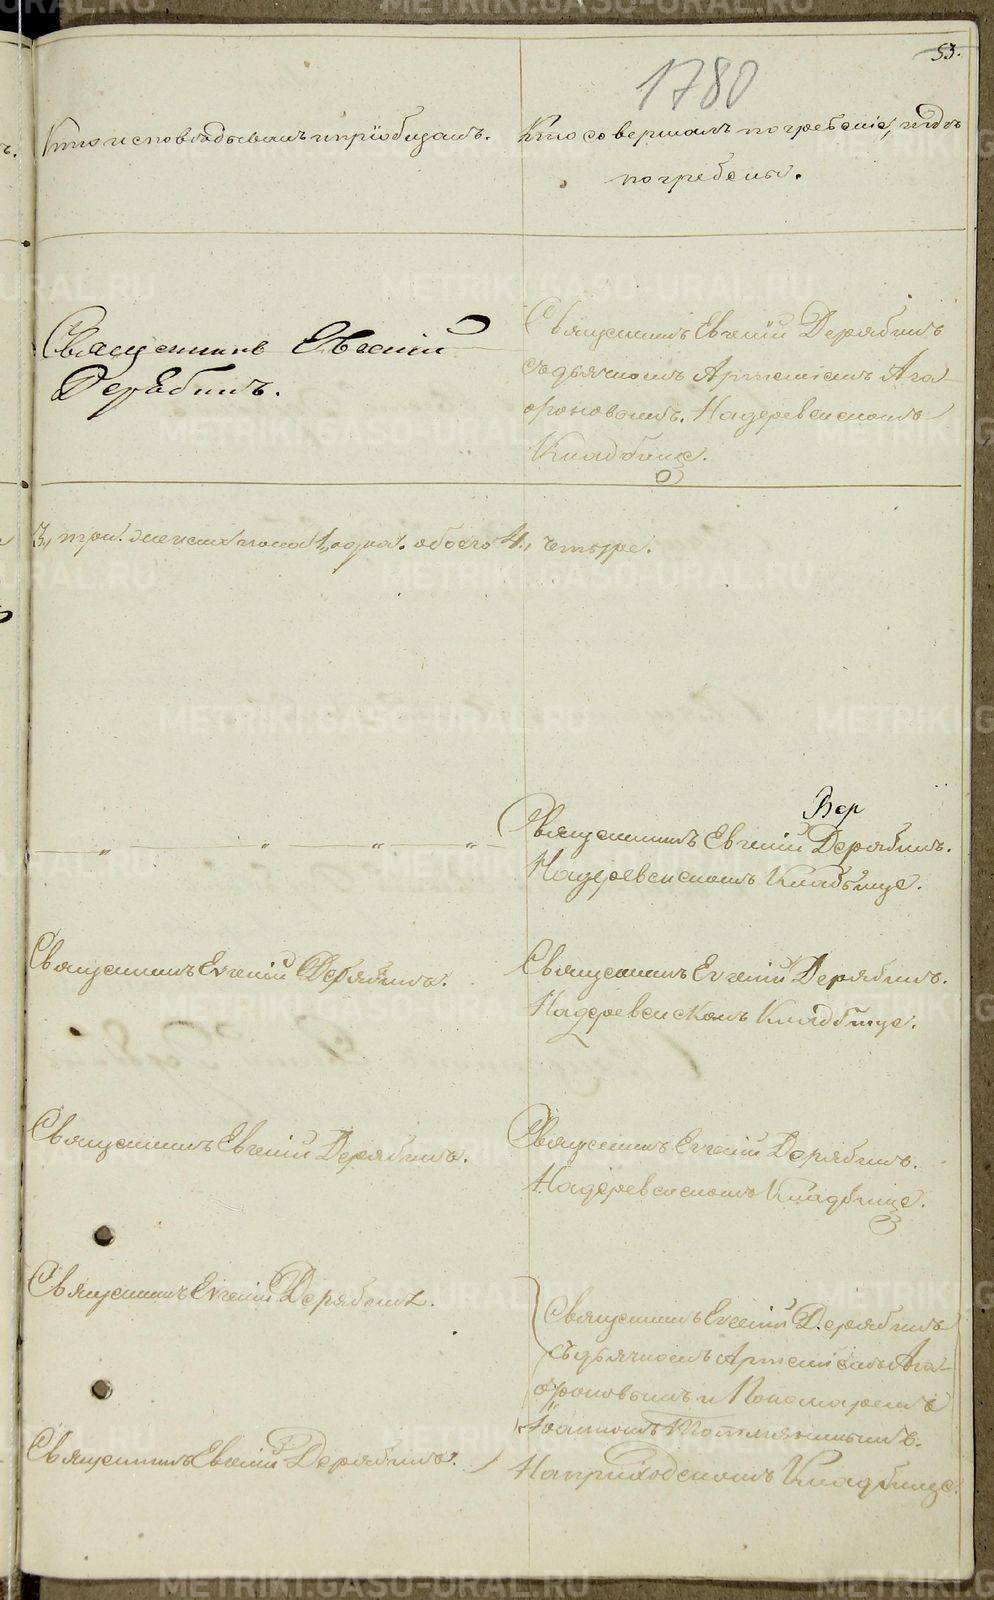 53.
1780
Кто исповѣдывалъ и пріобщалъ.
Кто совершалъ погребеніе, и гдѣ
погребены.
Священникъ Евгеній
Дерябинъ.
Священникъ Евгеній Дерябинъ
съ дьячкомъ Артеміемъ Ага-
фоновымъ. На деревенскомъ
Кладбище.
3, три. женска пола 1, одна. обоего 4, четыре.
Священникъ Евгеній Дерябинъ.
На деревенскомъ Кладбище.
Священникъ Евгеній Дерябинъ.
Священникъ Евгеній Дерябинъ.
На деревенскомъ Кладбище.
Священникъ Евгеній Дерябинъ.
Священникъ Евгеній Дерябинъ.
На деревенскомъ Кладбище.
Священникъ Евгеній Дерябинъ.
Священникъ Евгеній Дерябинъ
съ дьячкомъ Артеміемъ Ага-
фоновымъ и Пономаремъ
Іоанномъ
Священникъ Евгеній Дерябинъ.
На приходскомъ Кладбище.
METRIKI.GASO-URAL.RU